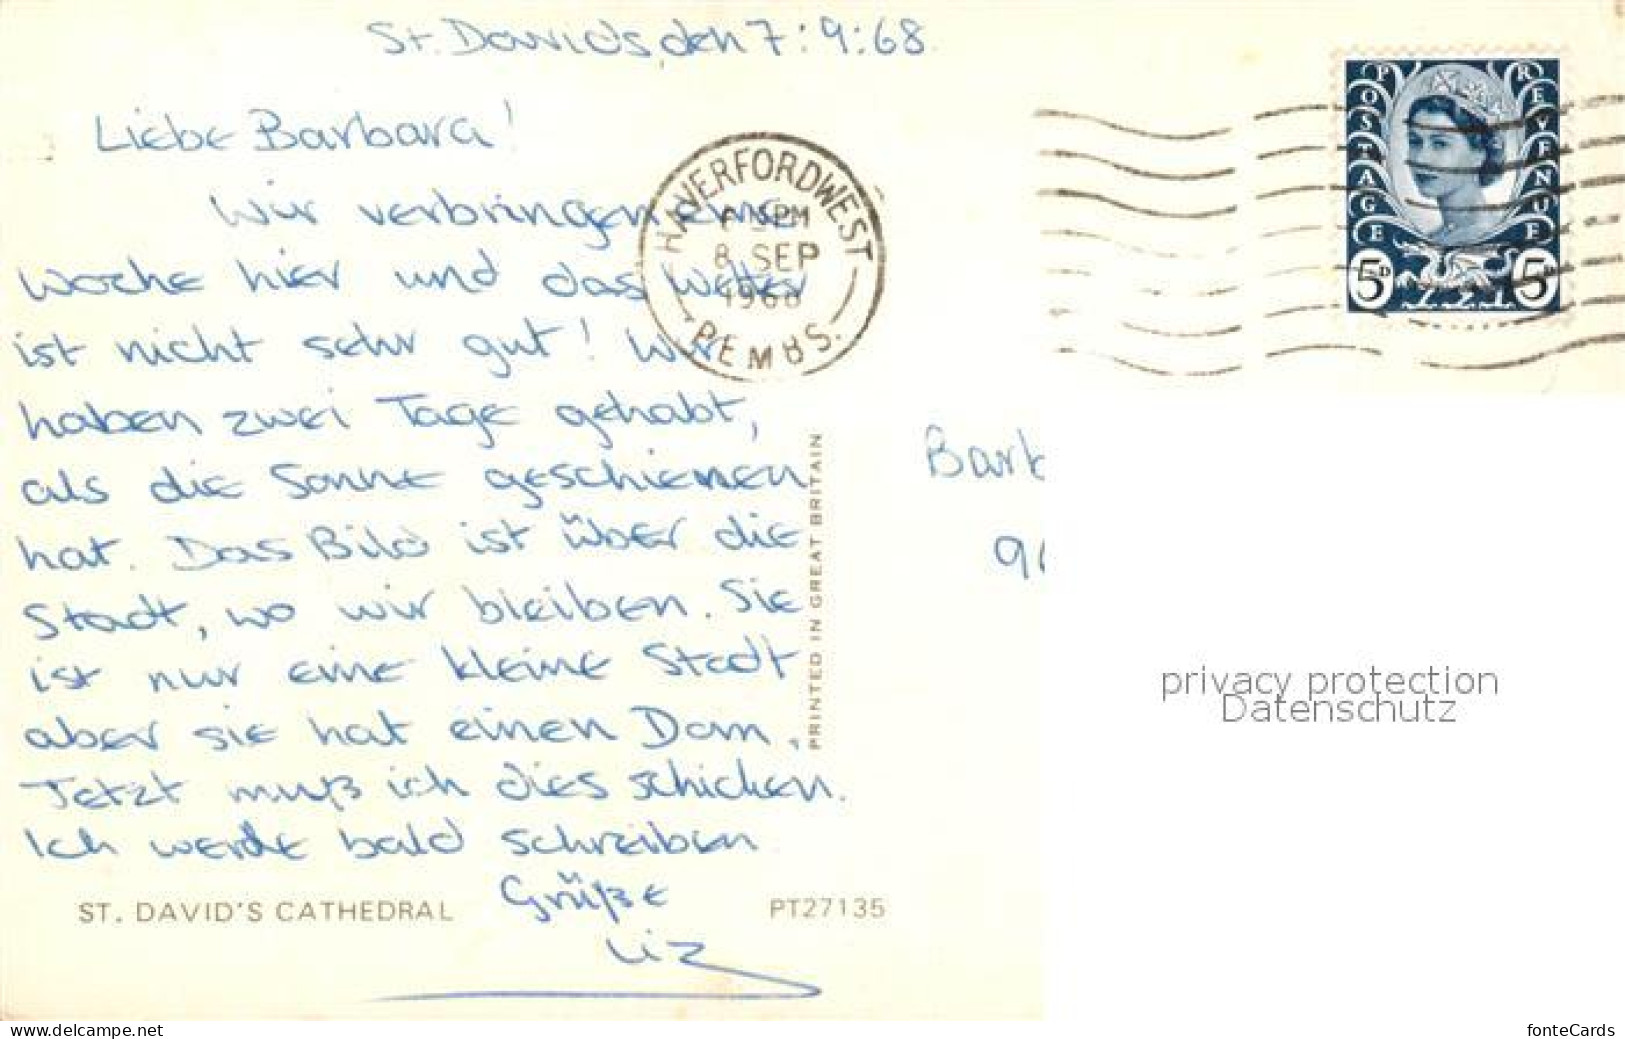 St. David's, den 7:9:68.
Liebe Barbara!
Wir verbringen eine
Woche hier und das Wetter
ist nicht sehr gut! Wir
haben zwei Tage gehabt,
als die Sonne geschienen
hat. Das Bild ist über die
Stadt, wo wir bleiben. Sie
ist nur eine kleine Stadt
aber sie hat einen Dom.
Jetzt muß ich dies schicken.
Ich werde bald schreiben
Grüße
Liz
ST. DAVID'S CATHEDRAL
PT27135
PRINTED IN GREAT BRITAIN
HAVERFORDWEST
PM
8 SEP
1968
PEMBS.
POSTAGE REVENUE
5D 5D
Barb
9
privacy protection
Datenschutz
www.delcampe.net
fonteCards